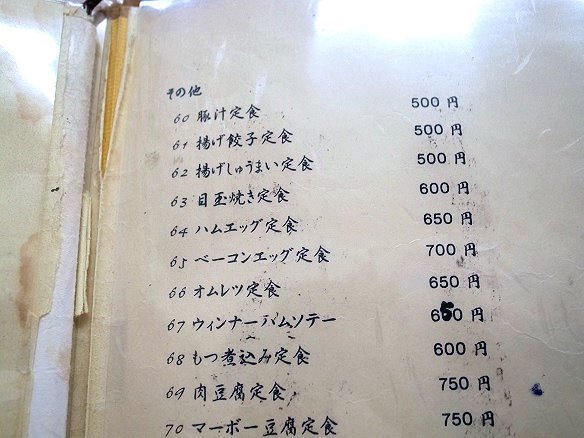 その他
60 豚汁定食 500 円
61 揚げ餃子定食 500 円
62 揚げしゅうまい定食 500 円
63 目玉焼き定食 600 円
64 ハムエッグ定食 650 円
65 ベーコンエッグ定食 700 円
66 オムレツ定食 650 円
67 ウィンナーハムソテー 650 円
68 もつ煮込み定食 600 円
69 肉豆腐定食 750 円
70 マーボー豆腐定食 750 円